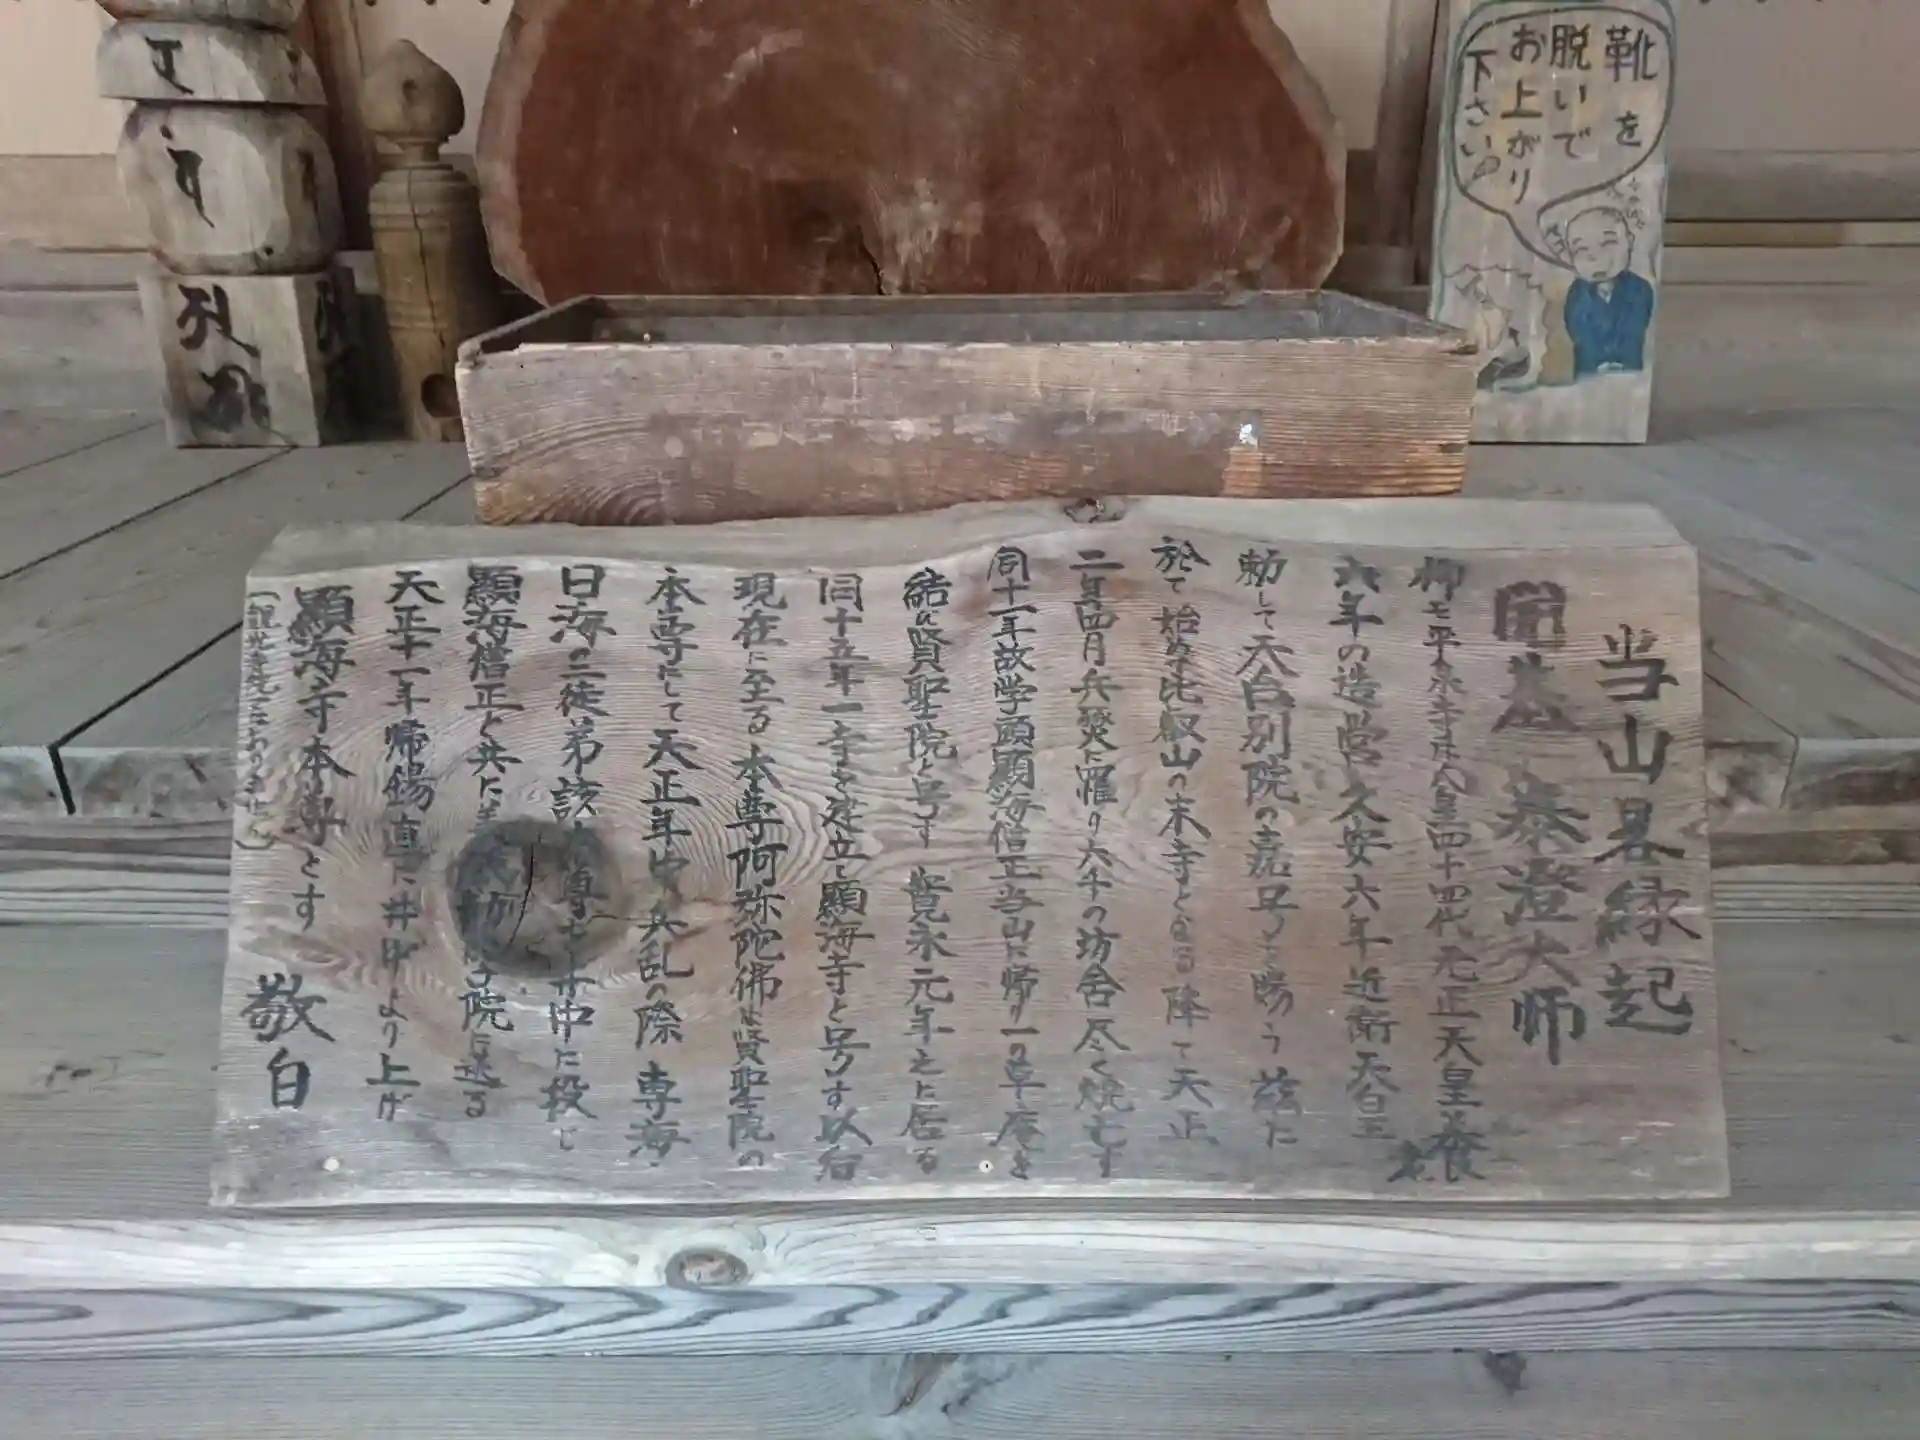 当山畧縁起
開基 泰澄大師
抑モ平泉寺は人皇四十四代元正天皇養老
六年の造営久安六年近衛天皇
勅して天台別院の嘉号を賜う 茲に
於て始めて比叡山の末寺となる 降て天正
二年四月兵燹に罹り六千の坊舎尽く焼亡す
同十一年故学頭顕海僧正当山に帰り一の草庵を
結ひ賢聖院と号す 寛永元年之に居る
同十五年一寺を建立し顕海寺と号す以后
現在に至る 本尊阿弥陀佛は賢聖院の
本尊にして天正年中兵乱の際 専海・
日海の二徒弟該 尊を井中に投じ
顕海僧正と共に美 院に逃る
天正十一年帰錫直に井中より上げ
顕海寺本尊とす
敬白
靴を
脱いで
お上がり
下さい